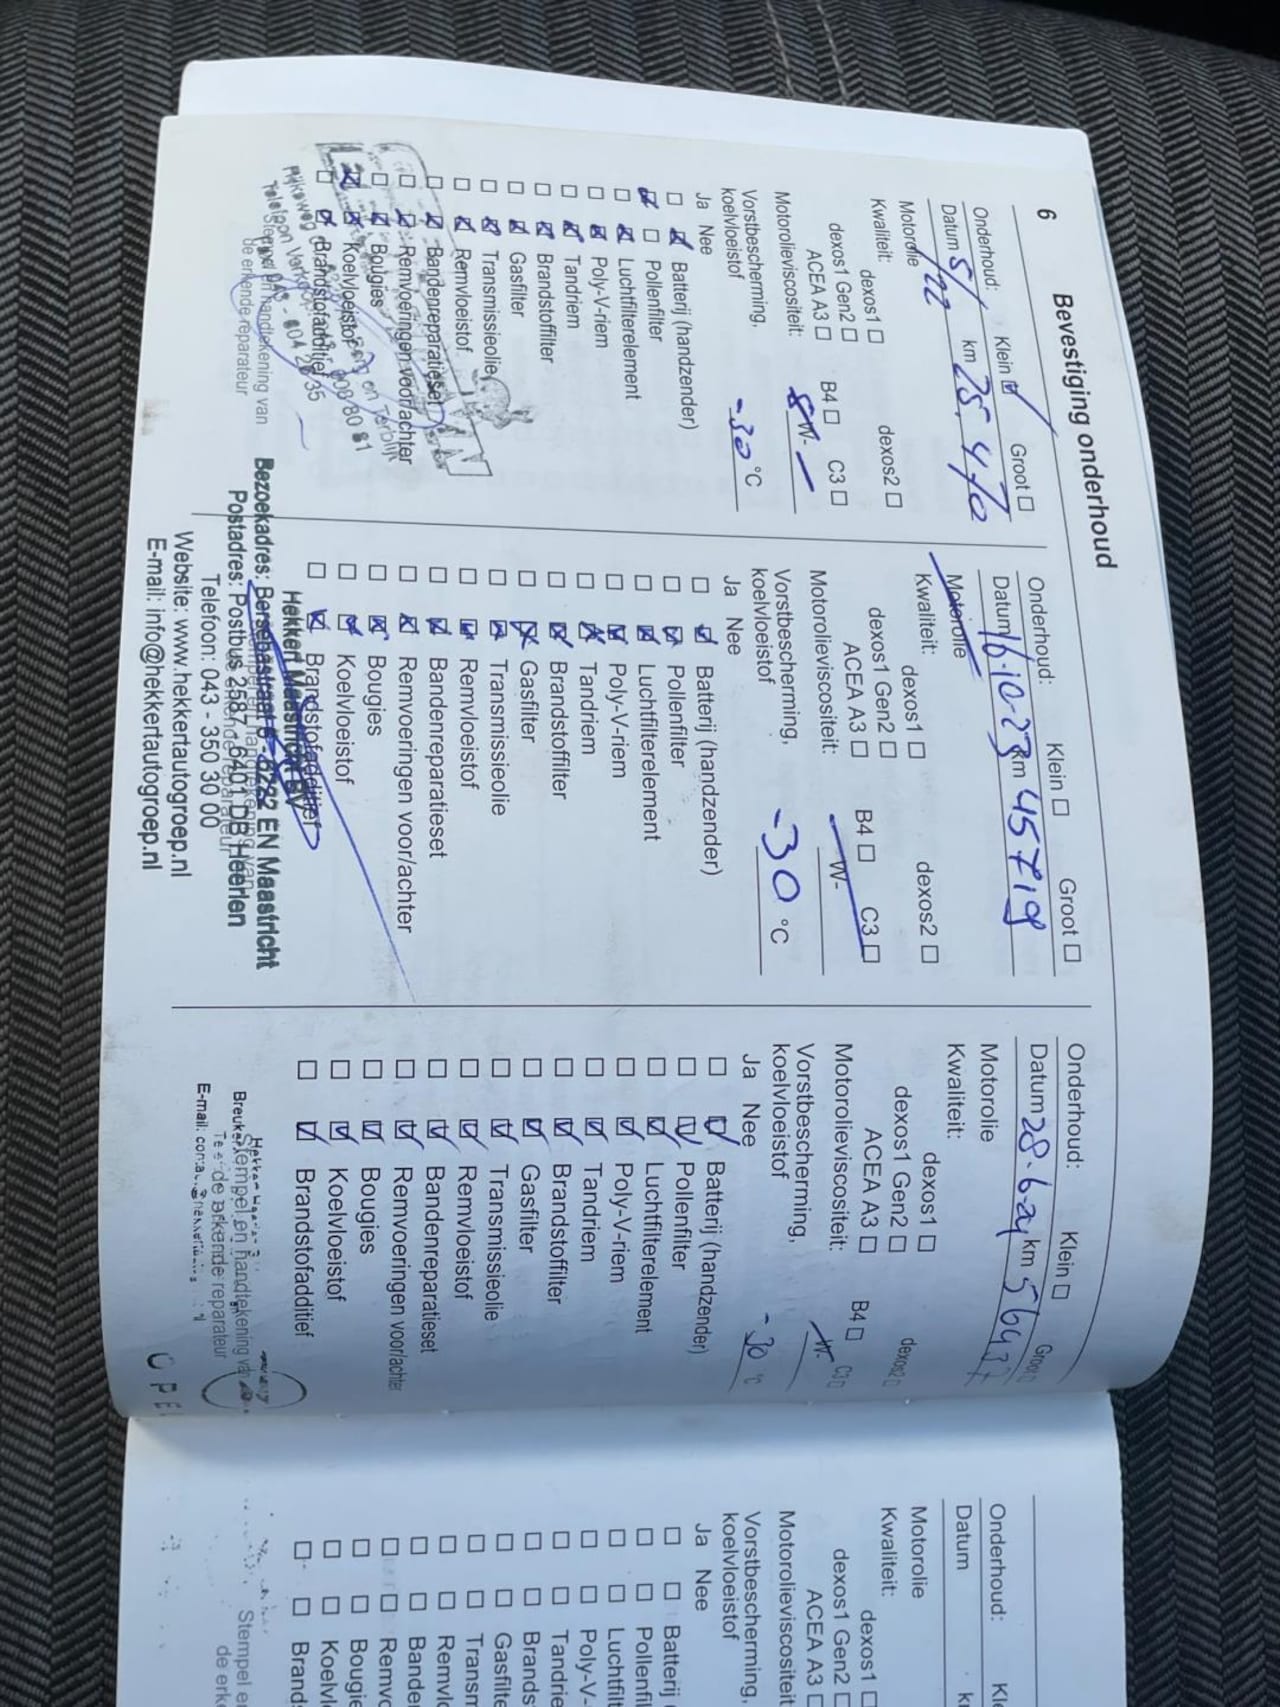 6 Bevestiging onderhoud
Onderhoud: Klein Groot
Datum 5/ /22 km 25.470
Motorolie
Kwaliteit: dexos1 dexos2
dexos1 Gen2
ACEA A3 B4 C3
Motorolieviscositeit: W-
Vorstbescherming,
koelvloeistof -30 °C
Ja Nee
Batterij (handzender)
Pollenfilter
Luchtfilterelement
Poly-V-riem
Tandriem
Brandstoffilter
Gasfilter
Transmissieolie
Remvloeistof
Bandenreparatieset
Remvoeringen voor/achter
Bougies
Koelvloeistof
Brandstofadditief
Stempel en handtekening van
de erkende reparateur
Onderhoud: Klein Groot
Datum 16-10-23 km 45719
Motorolie
Kwaliteit: dexos1 dexos2
dexos1 Gen2
ACEA A3 B4 C3
Motorolieviscositeit: W-
Vorstbescherming,
koelvloeistof -30 °C
Ja Nee
Batterij (handzender)
Pollenfilter
Luchtfilterelement
Poly-V-riem
Tandriem
Brandstoffilter
Gasfilter
Transmissieolie
Remvloeistof
Bandenreparatieset
Remvoeringen voor/achter
Bougies
Koelvloeistof
Brandstofadditief
Hekkert Maastricht BV
Bezoekadres: Bersebastraat 6 - 6222 EN Maastricht
Postadres: Postbus 2587 - 6401 DB Heerlen
Telefoon: 043 - 350 30 00
Website: www.hekkertautogroep.nl
E-mail: info@hekkertautogroep.nl
Onderhoud: Klein Groot
Datum 28-6-24 km 56437
Motorolie
Kwaliteit: dexos1 dexos2
dexos1 Gen2
ACEA A3 B4 C3
Motorolieviscositeit: W-
Vorstbescherming,
koelvloeistof -30 °C
Ja Nee
Batterij (handzender)
Pollenfilter
Luchtfilterelement
Poly-V-riem
Tandriem
Brandstoffilter
Gasfilter
Transmissieolie
Remvloeistof
Bandenreparatieset
Remvoeringen voor/achter
Bougies
Koelvloeistof
Brandstofadditief
Stempel en handtekening van
de erkende reparateur
E-mail:
Onderhoud: Kl
Datum k
Motorolie
Kwaliteit: dexos1
dexos1 Gen2
ACEA A3
Motorolieviscositeit
Vorstbescherming,
koelvloeistof
Ja Nee
Batterij (
Pollenfil
Luchtfilt
Poly-V-
Tandrie
Brandst
Gasfilte
Transm
Remvlo
Bande
Remvo
Bougie
Koelvl
Brands
Stempel e
de erke